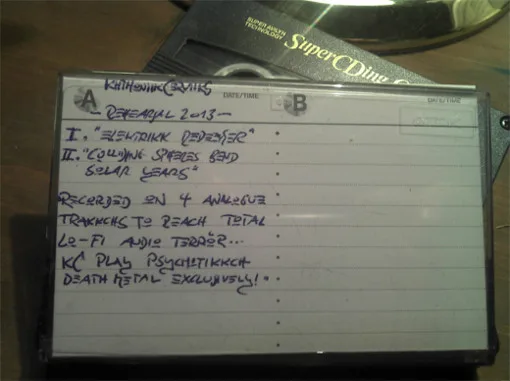 SUPER AVILYN
TECHNOLOGY
SuperCDing
KHTHONIIK CERVIIKS
A DATE/TIME B DATE/TIME
– REHEARSAL 2013 –
I. "ELEKTRIKK REDEEMER"
II. "COLLIDING SPHERES BEND
SOLAR YEARS"
RECORDED ON 4 ANALOGUE
TRAKKCHS TO REACH TOTAL
LO-FI AUDIO TERRÖR...
KC PLAY PSYCHOTIKKCH
DEATH METAL EXCLUSIVELY!